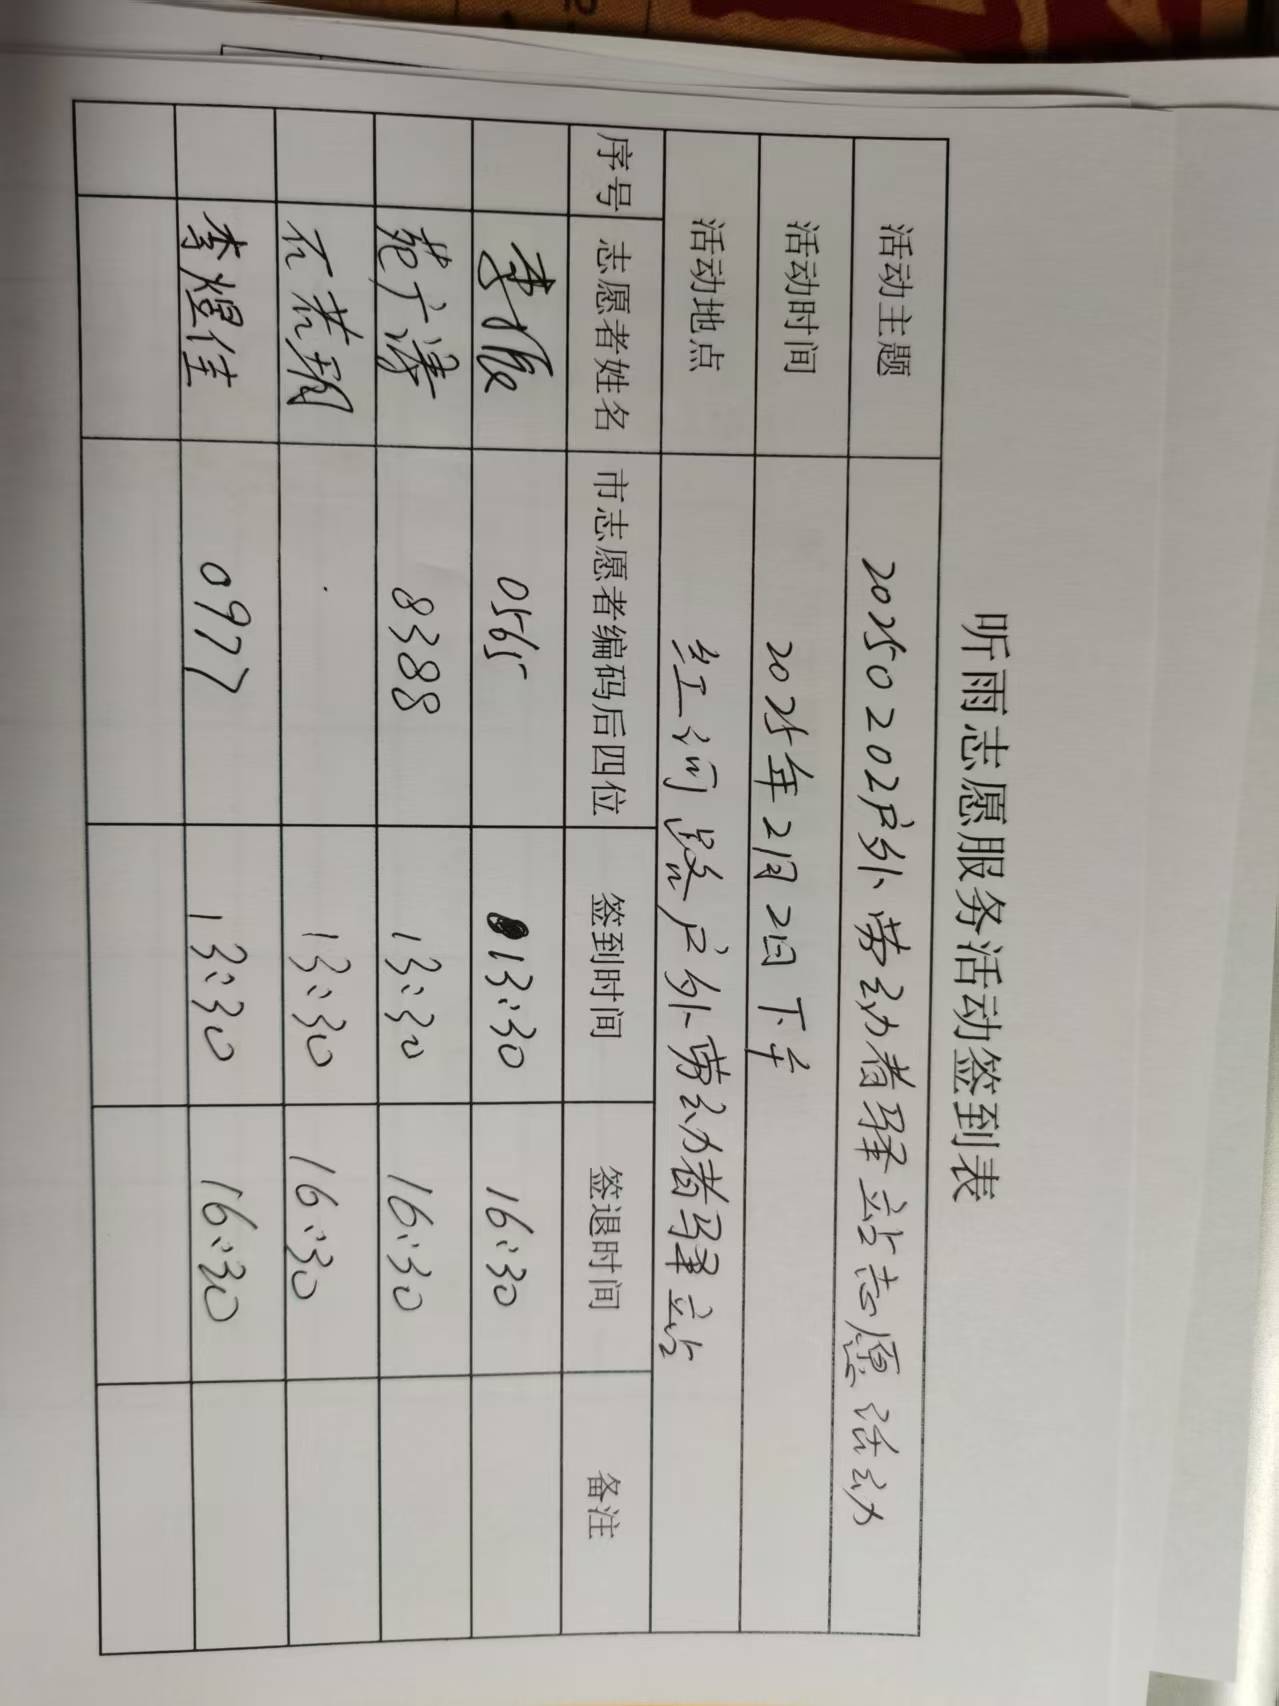 听雨志愿服务活动签到表
活动主题 20250202户外劳动者驿站志愿活动
活动时间 2025年2月2日下午
活动地点 红河路户外劳动者驿站
序号 志愿者姓名 市志愿者编码后四位 签到时间 签退时间 备注
李振 0565 13:30 16:30
苑广涛 8388 13:30 16:30
13:30 16:30
李煜佳 0977 13:30 16:30